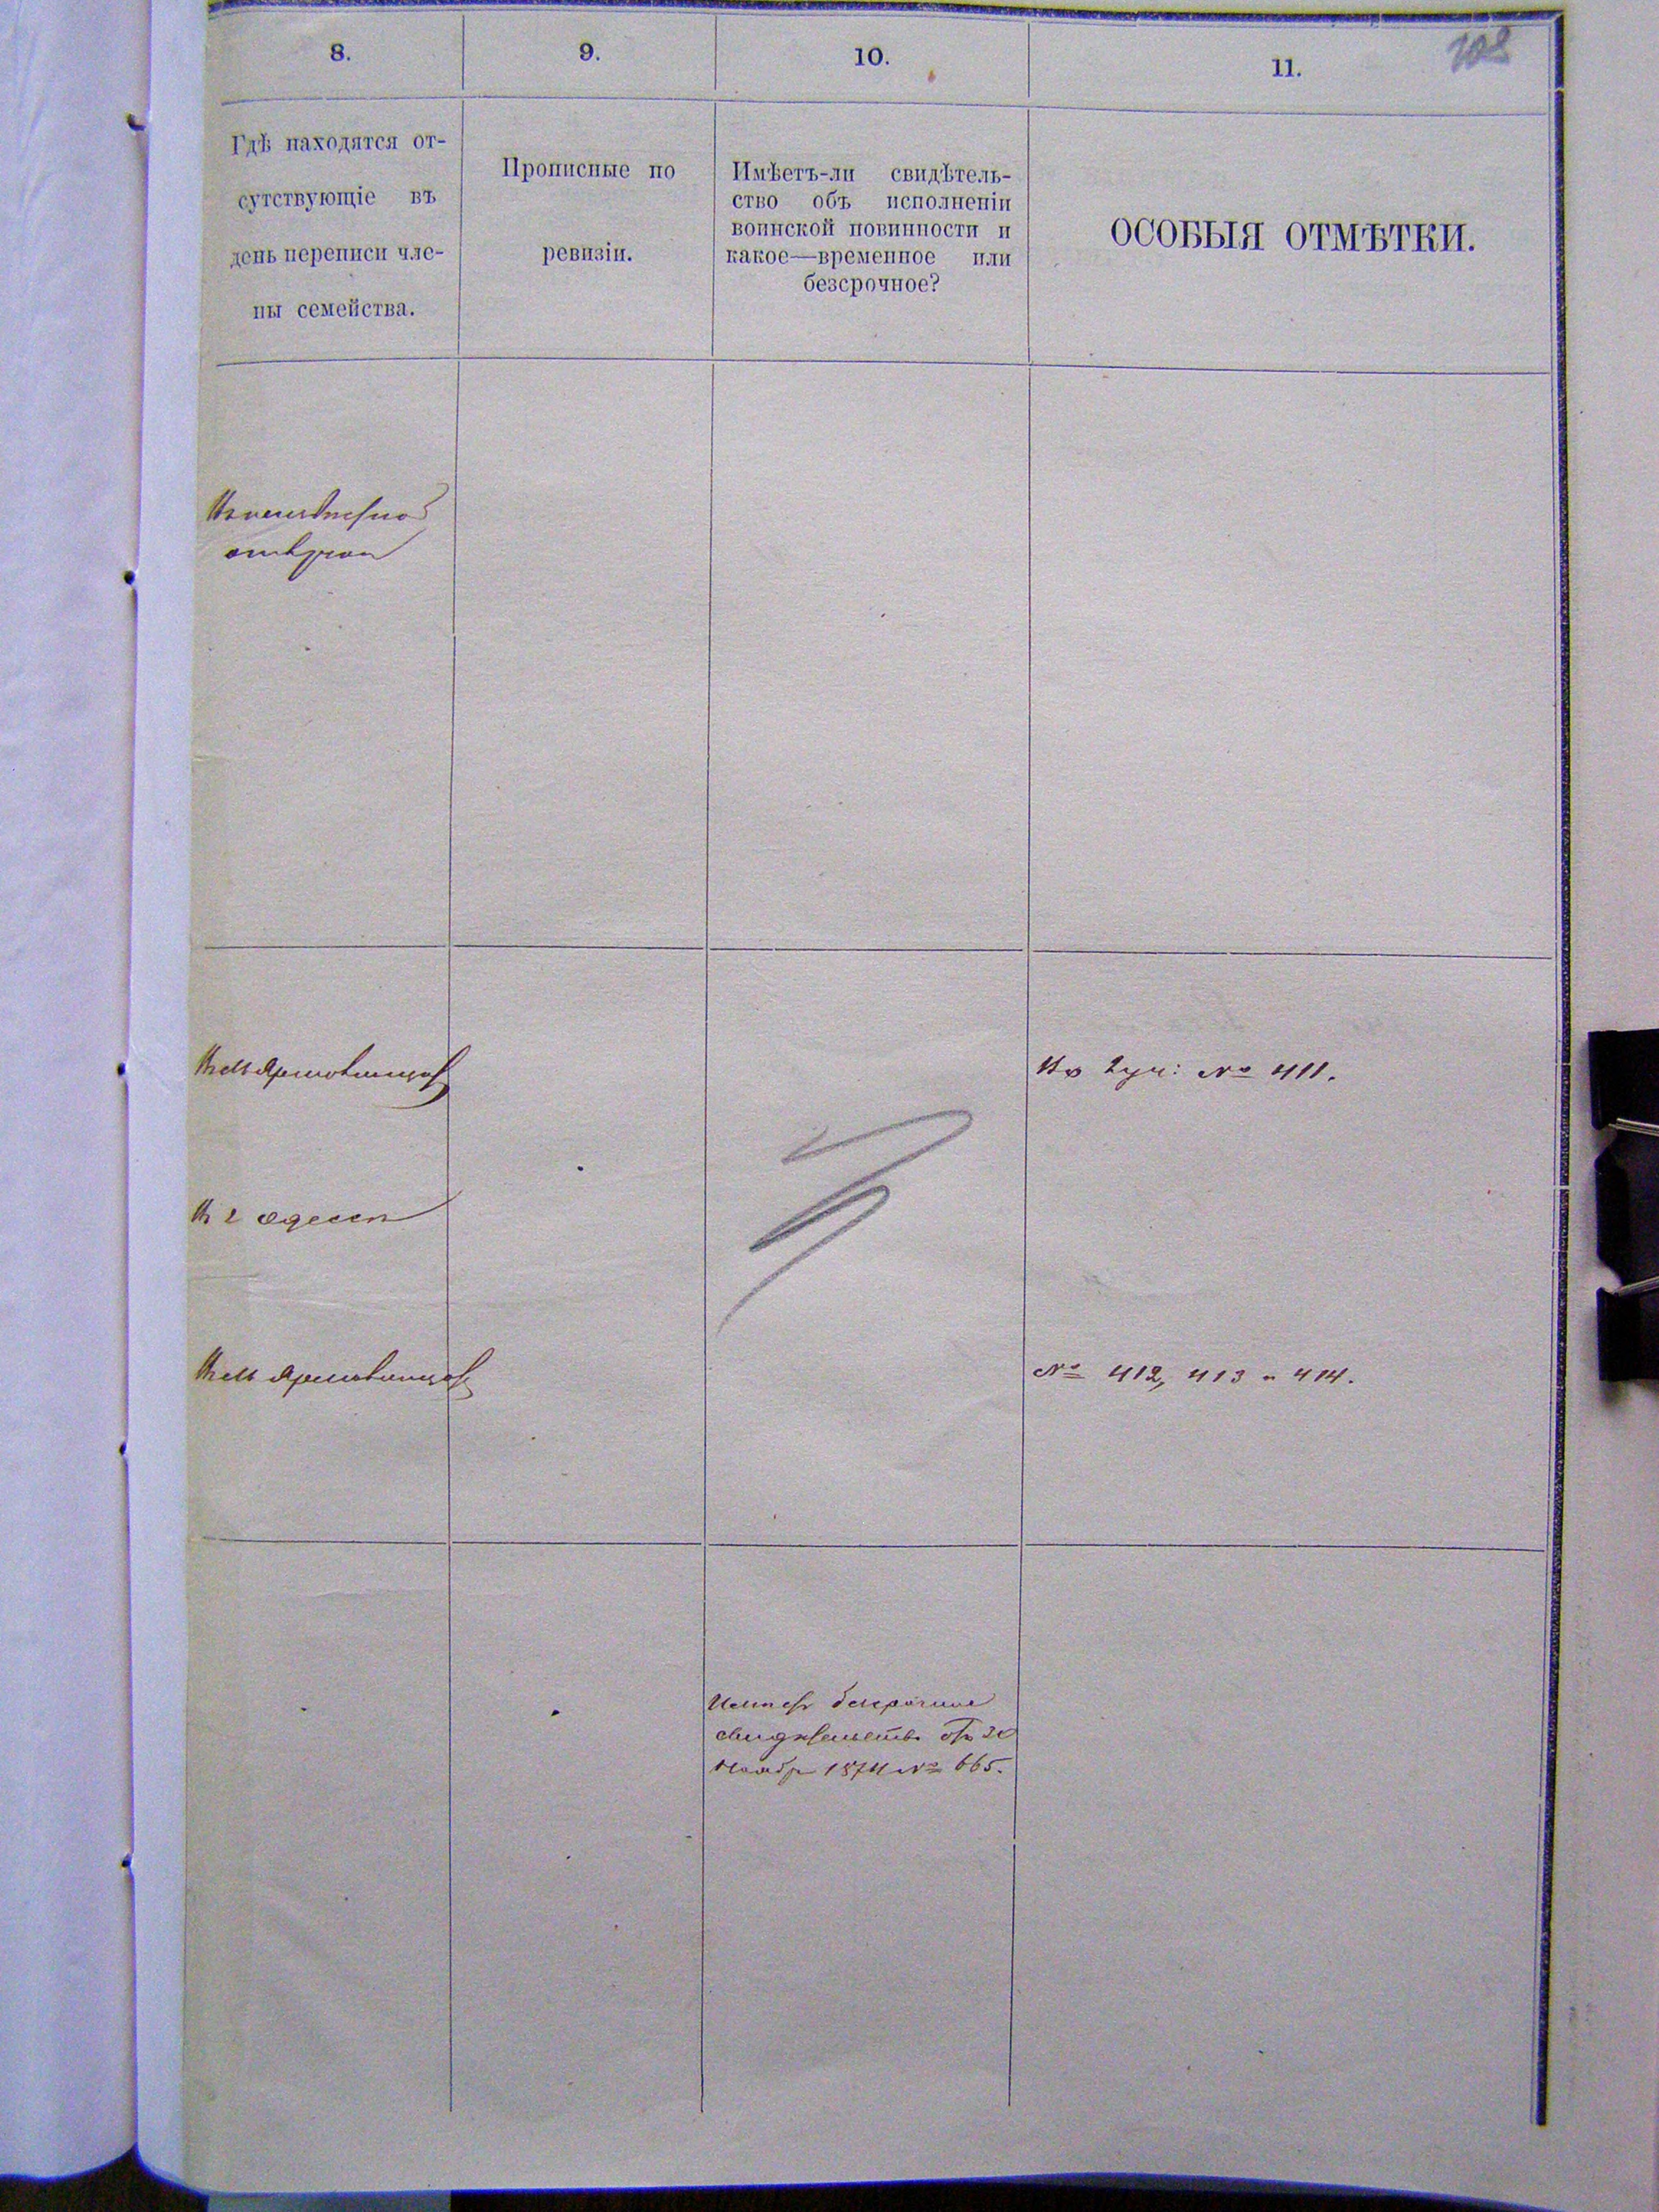 8.
9.
10.
11.
Гдѣ находятся от-
сутствующіе въ
день переписи чле-
ны семейства.
Прописные по
ревизіи.
Имѣетъ-ли свидѣтель-
ство объ исполненіи
воинской повинности и
какое—временное или
безсрочное?
ОСОБЫЯ ОТМѢТКИ.
Въ м Ярмолинцахъ
Въ 2 уч: № 411.
Въ г Одессѣ
Въ м Ярмолинцахъ
№ 412, 413 и 414.
Имѣетъ безсрочное
свидѣтельство отъ
Ноября 1874 № 665.